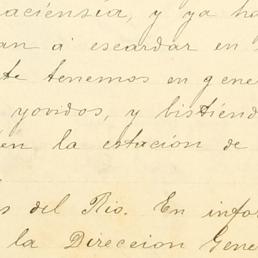 y ya ha
an á escardar en
te tenemos en gene
yovidos, y bistiend
en la estación de
s del Rio. En infor
la Direccion Gene